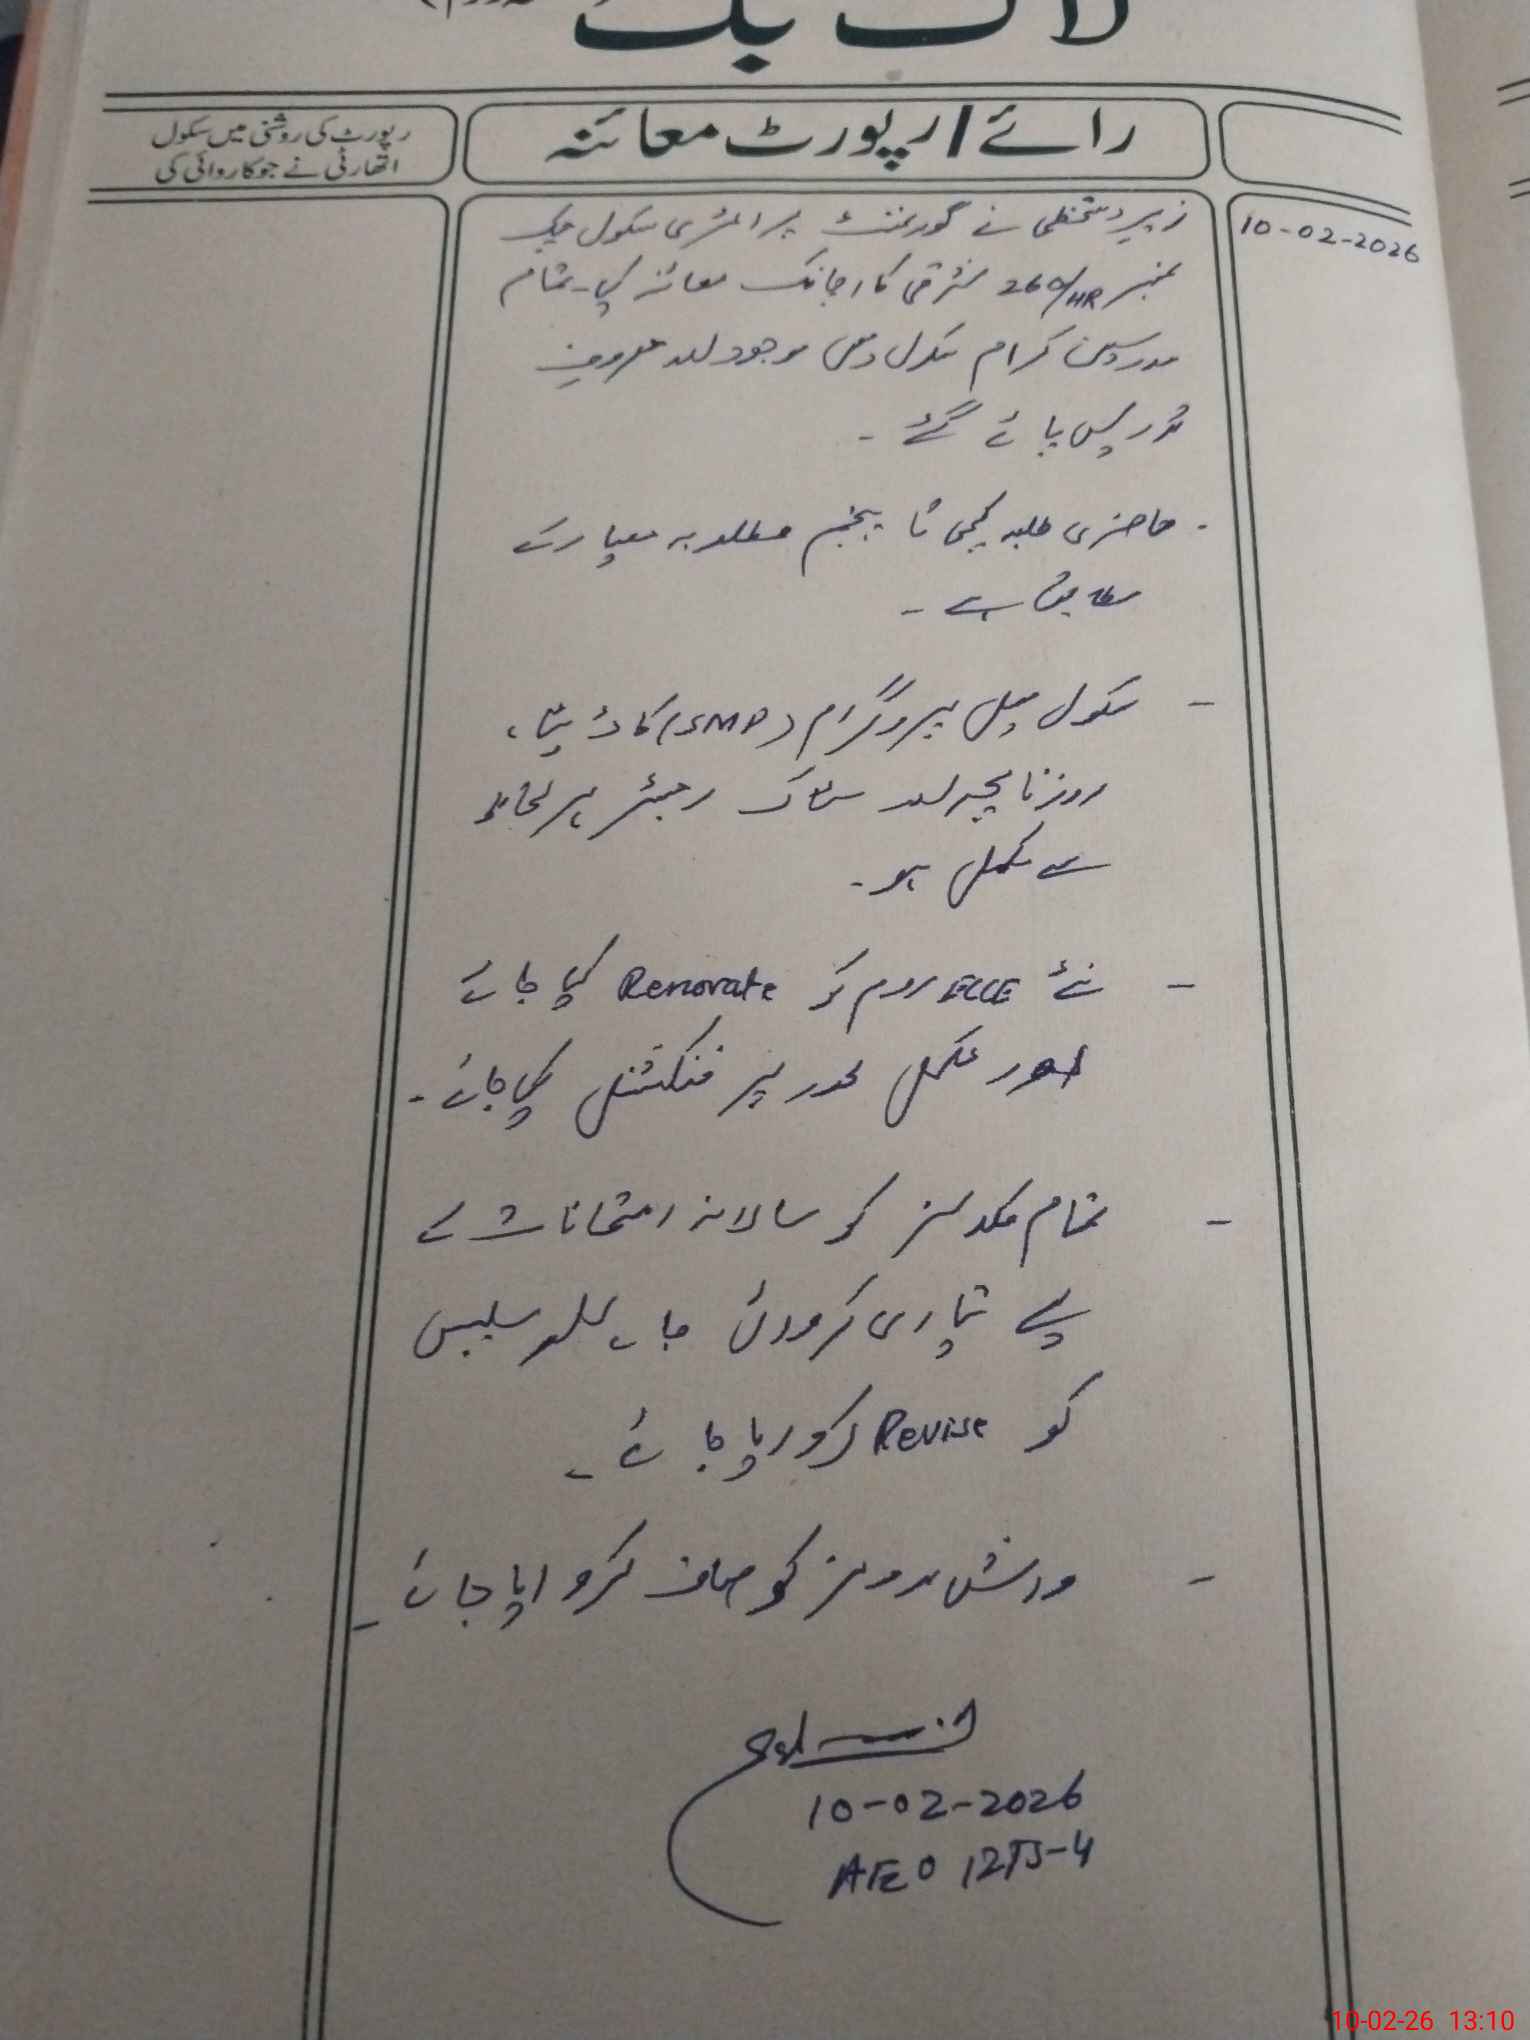 لاگ بک
رائے / رپورٹ معائنہ
رپورٹ کی روشنی میں سکول
اتھارٹی نے جو کاروائی کی
10-02-2026
زیر دستخطی نے گورنمنٹ پرائمری سکول چک
نمبر 260/HR شرقی کا اچانک معائنہ کیا۔ تمام
مدرسین کرام سکول میں موجود اور مصروف
تدریس پائے گئے ۔
۔ حاضری طلبہ کچی تا پنجم مطلوبہ معیار کے
مطابق ہے ۔
- سکول میل پروگرام (SMP) کا ڈیٹا،
روزنامچہ اور سٹاک رجسٹر ہر لحاظ
سے مکمل ہو۔
- نئے ECCE روم کو Renovate کیا جائے
اور مکمل طور پر فنکشنل کیا جائے۔
- تمام کلاسز کو سالانہ امتحانات کے
لیے تیاری کروائی جائے اور سلیبس
کو Revise کروایا جائے ۔
- واش رومز کو صاف کروایا جائے ۔
10-02-2026
AEO 12TS-4
10-02-26 13:10